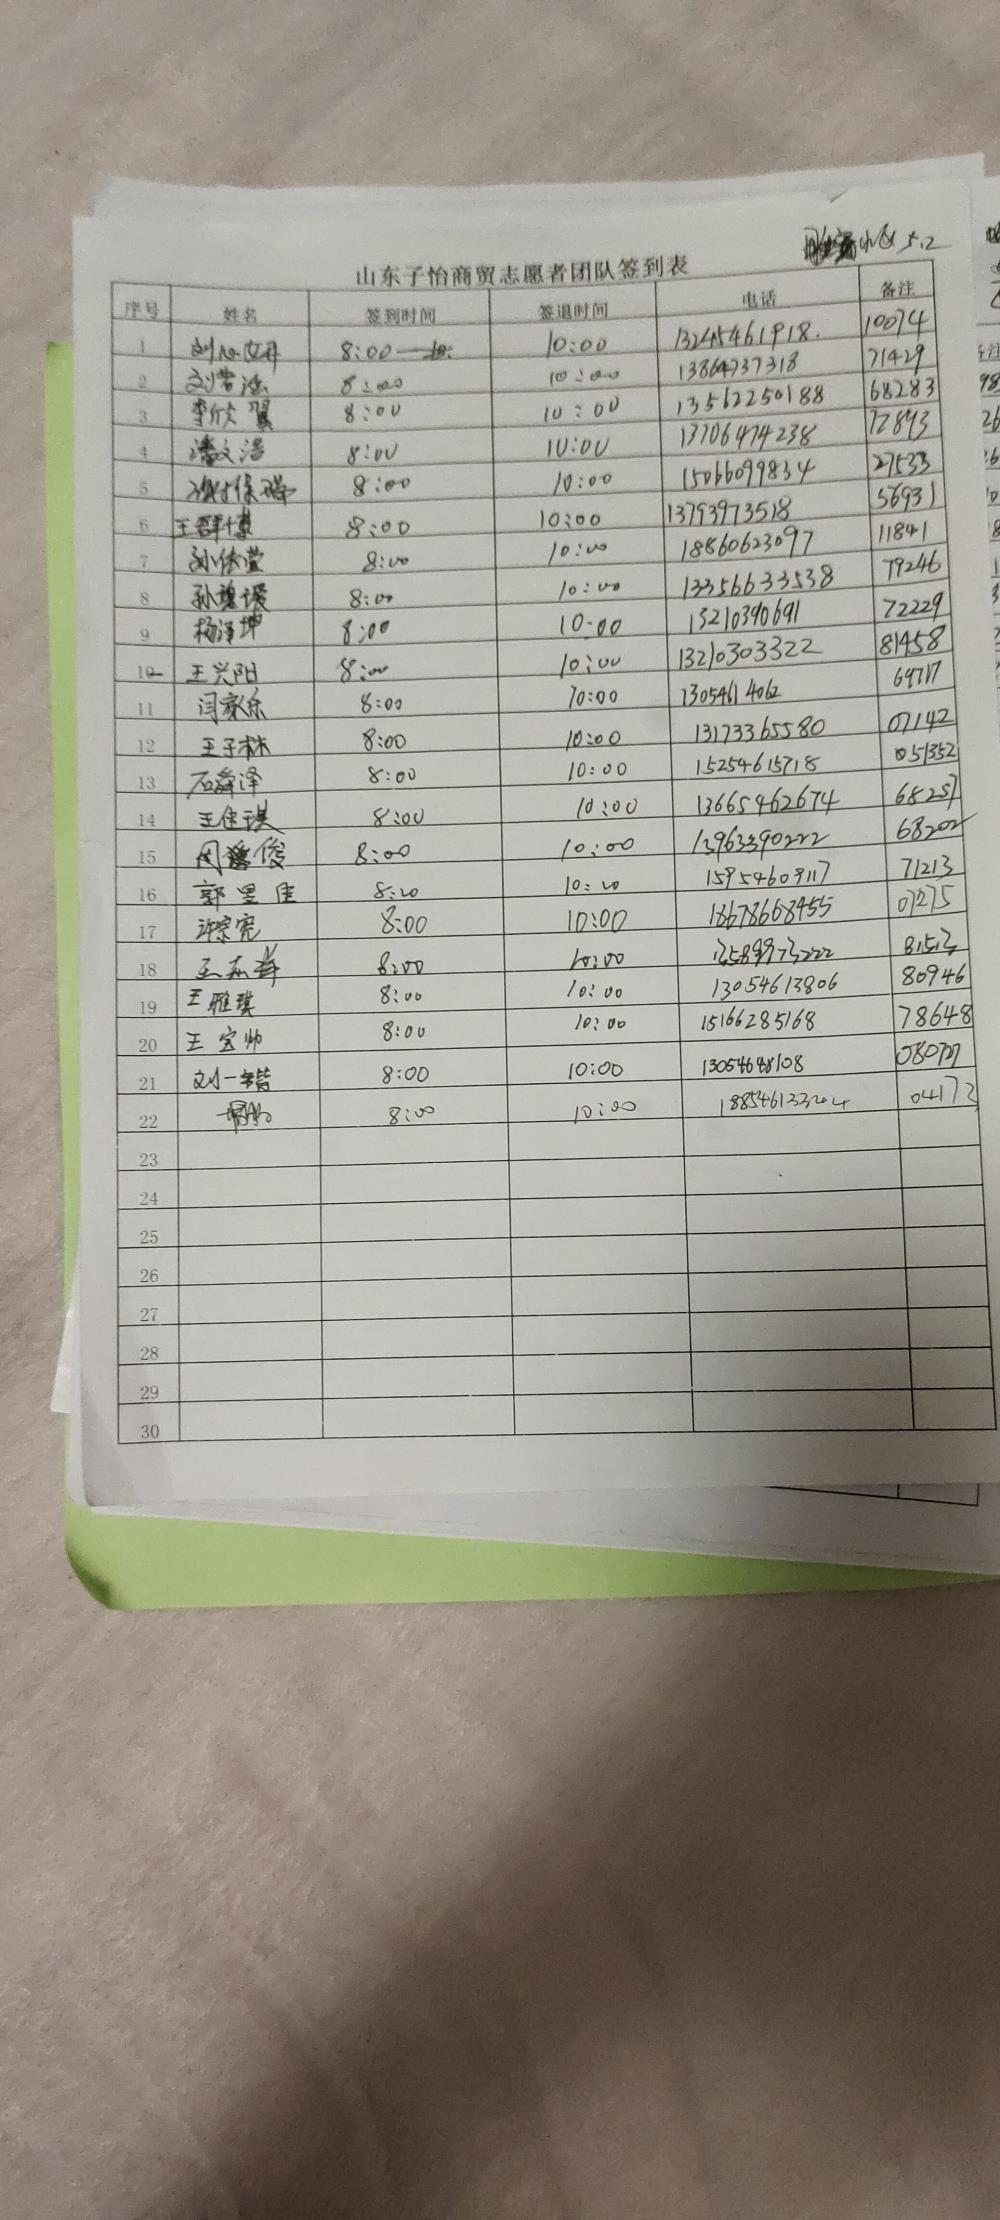 小区 5.2
山东子怡商贸志愿者团队签到表
序号 姓名 签到时间 签退时间 电话 备注
1 8:00 10:00 13245461918. 10074
2 8:00 10:00 13864737318 71429
3 李欣翼 8:00 10:00 13562250188 68283
4 潘文浩 8:00 10:00 13706474238 72893
5 8:00 10:00 15066099834 27533
6 王群博 8:00 10:00 13793973518 56931
7 8:00 10:00 18860623097 11841
8 8:00 10:00 13356633538 79246
9 杨泽坤 8:00 10:00 13210390691 72229
10 王兴阳 8:00 10:00 13210303322 81458
11 闫家乐 8:00 10:00 13054614062 69717
12 王子林 8:00 10:00 13173365580 07142
13 石舜泽 8:00 10:00 15254615718 051352
14 王佳琪 8:00 10:00 13665462674 68257
15 8:00 10:00 13963390222 68202
16 郭昱佳 8:00 10:00 15954609117 71213
17 许宗宪 8:00 10:00 18678668455 07275
18 8:00 10:00 13589973222 81513
19 王雅琪 8:00 10:00 13054613806 80946
20 王宝帅 8:00 10:00 15166285168 78648
21 刘一锴 8:00 10:00 13054648108 080727
22 8:00 10:00 188546133204 04173
23
24
25
26
27
28
29
30